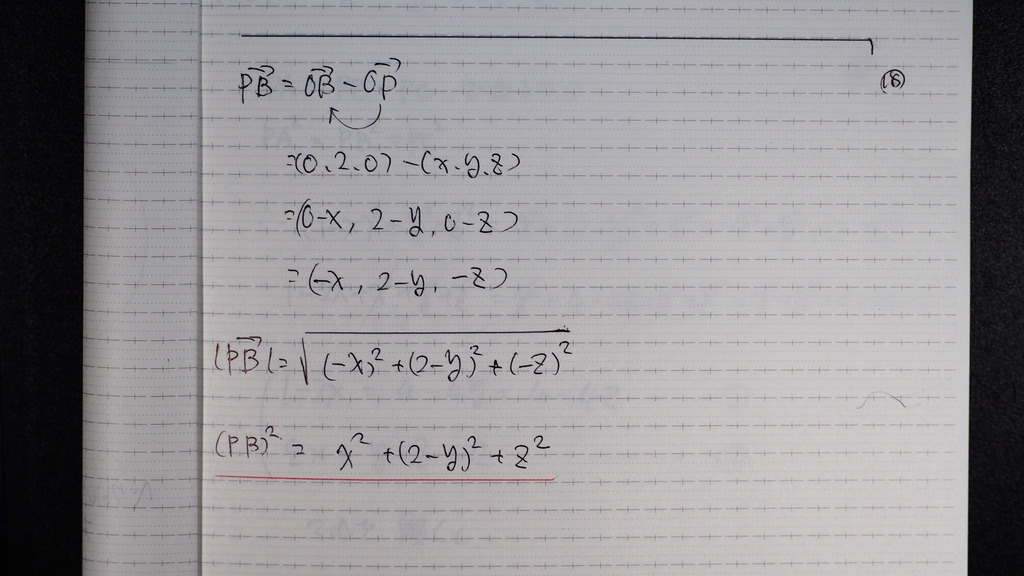 (18)
PB→ = OB→ − OP→
=(0.2.0) −(x.y.z)
=(0−x, 2−y, 0−z)
=(−x, 2−y, −z)
|PB→| = √(−x)² +(2−y)² +(−z)²
(PB)² = x² +(2−y)² + z²